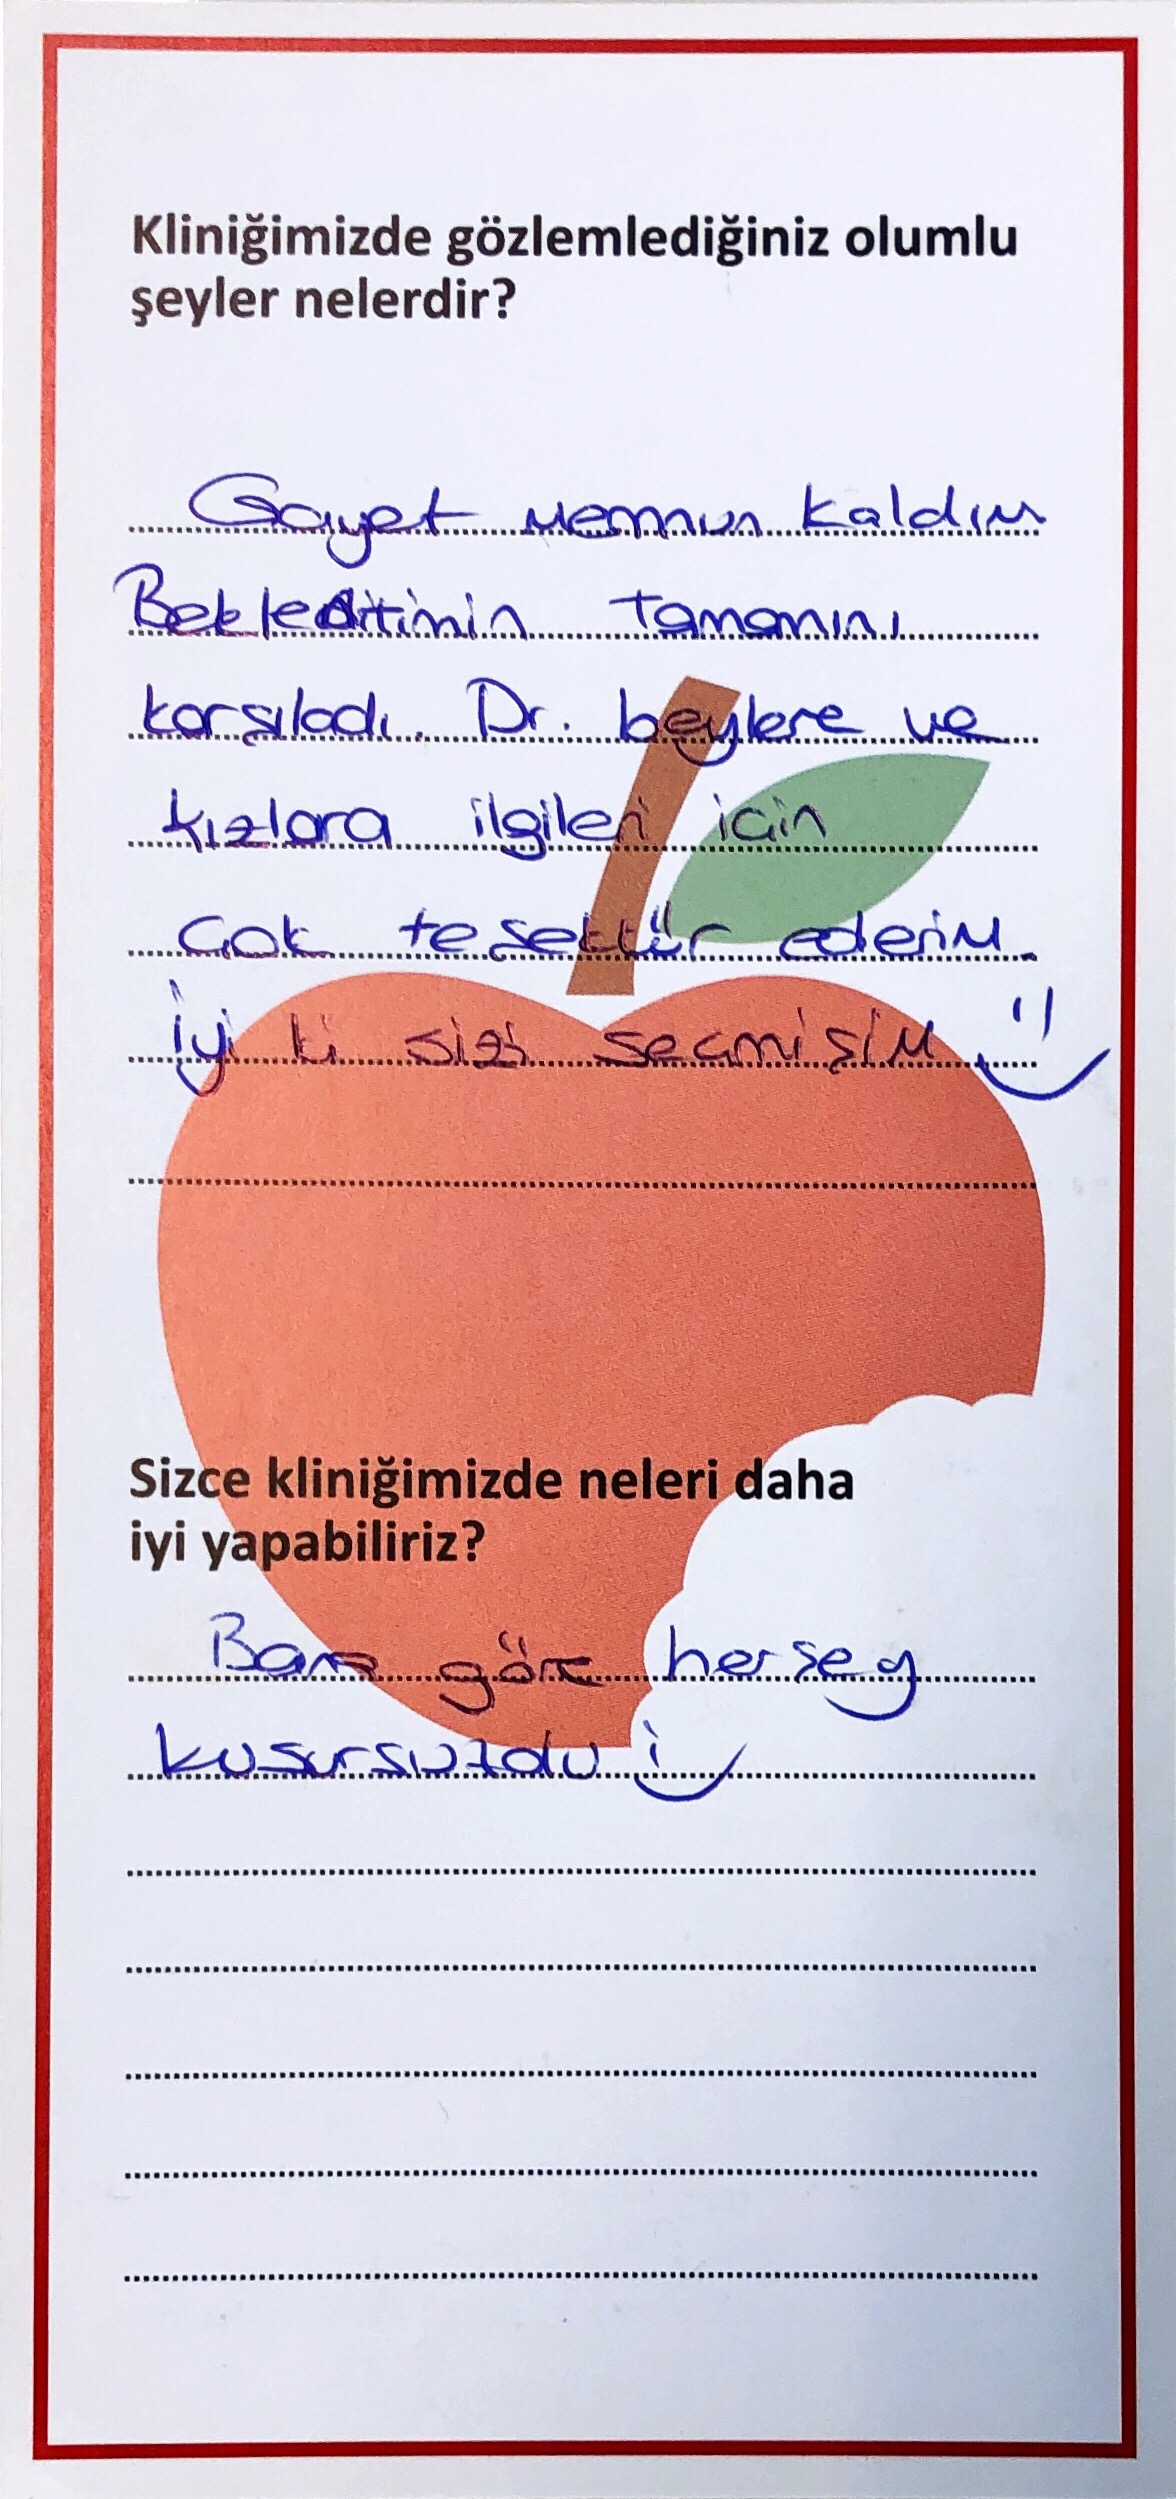 Kliniğimizde gözlemlediğiniz olumlu
şeyler nelerdir?
Gayet Memnun kaldım
Bekleditimin tamamını
karşıladı. Dr. beylere ve
kızlara ilgileri için
Çok teşekkür ederim.
İyi ki sizi seçmişim :)
Sizce kliniğimizde neleri daha
iyi yapabiliriz?
Bana göre herşey
kusursuzdu :)